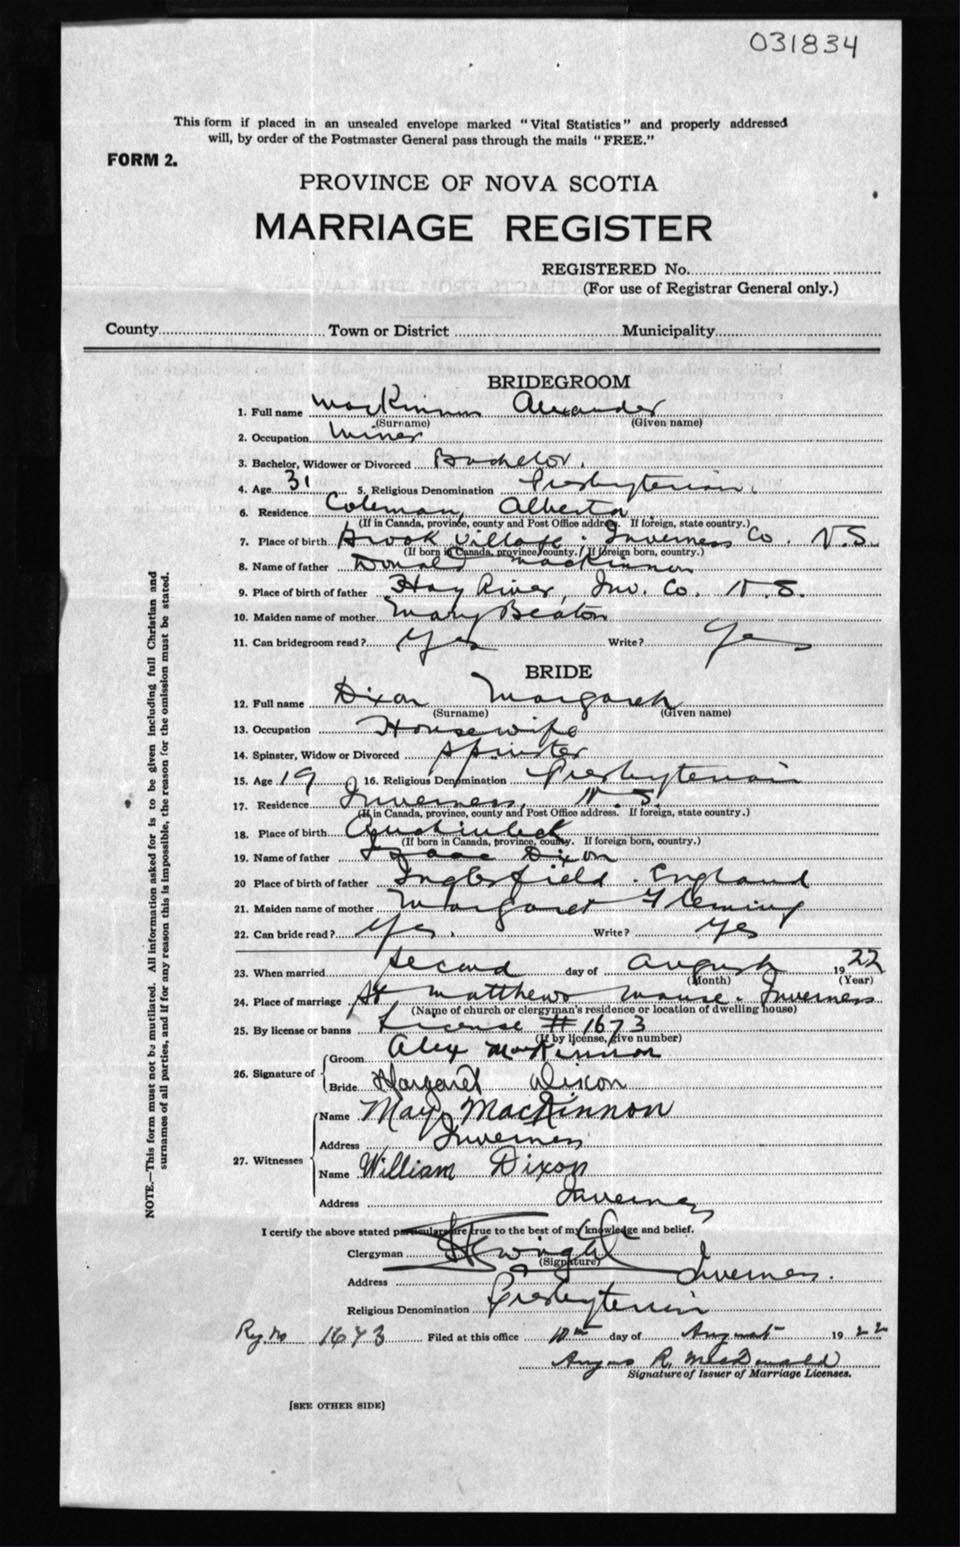 031834
This form if placed in an unsealed envelope marked "Vital Statistics" and properly addressed
will, by order of the Postmaster General pass through the mails "FREE."
FORM 2.
PROVINCE OF NOVA SCOTIA
MARRIAGE REGISTER
REGISTERED No.
(For use of Registrar General only.)
County Town or District Municipality
BRIDEGROOM
1. Full name MacKinnon Alexander
(Surname) (Given name)
2. Occupation Miner
3. Bachelor, Widower or Divorced Bachelor.
4. Age 31 5. Religious Denomination Presbyterian.
6. Residence Coleman, Alberta
(If in Canada, province, county and Post Office address. If foreign, state country.)
7. Place of birth Brook Village. Inverness Co. N.S.
(If born in Canada, province, county. If foreign born, country.)
8. Name of father Donald MacKinnon
9. Place of birth of father Hay River, Inv. Co. N.S.
10. Maiden name of mother Mary Beaton
11. Can bridegroom read? Yes Write? Yes
BRIDE
12. Full name Dixon Margaret
(Surname) (Given name)
13. Occupation Housewife
14. Spinster, Widow or Divorced Spinster
15. Age 19 16. Religious Denomination Presbyterian
17. Residence Inverness, N.S.
(If in Canada, province, county and Post Office address. If foreign, state country.)
18. Place of birth
(If born in Canada, province, county. If foreign born, country.)
19. Name of father Isaac Dixon
20 Place of birth of father Inglesfield. England
21. Maiden name of mother Margaret Fleming
22. Can bride read? Yes. Write? Yes
23. When married Second day of August 1922
(Month) (Year)
24. Place of marriage St Matthews Manse. Inverness
(Name of church or clergyman's residence or location of dwelling house)
25. By license or banns License #1673
(If by license, give number)
26. Signature of Groom Alex MacKinnon
Bride Margaret Dixon
27. Witnesses Name May MacKinnon
Address Inverness
Name William Dixon
Address Inverness
I certify the above stated particulars are true to the best of my knowledge and belief.
Clergyman
(Signature)
Address Inverness.
Religious Denomination Presbyterian
Reg No 1673 Filed at this office 10th day of August 1922
Angus R. McDonald
Signature of Issuer of Marriage Licenses.
[SEE OTHER SIDE]
NOTE.—This form must not be mutilated. All information asked for is to be given including full Christian and
surnames of all parties, and if for any reason this is impossible, the reason for the omission must be stated.